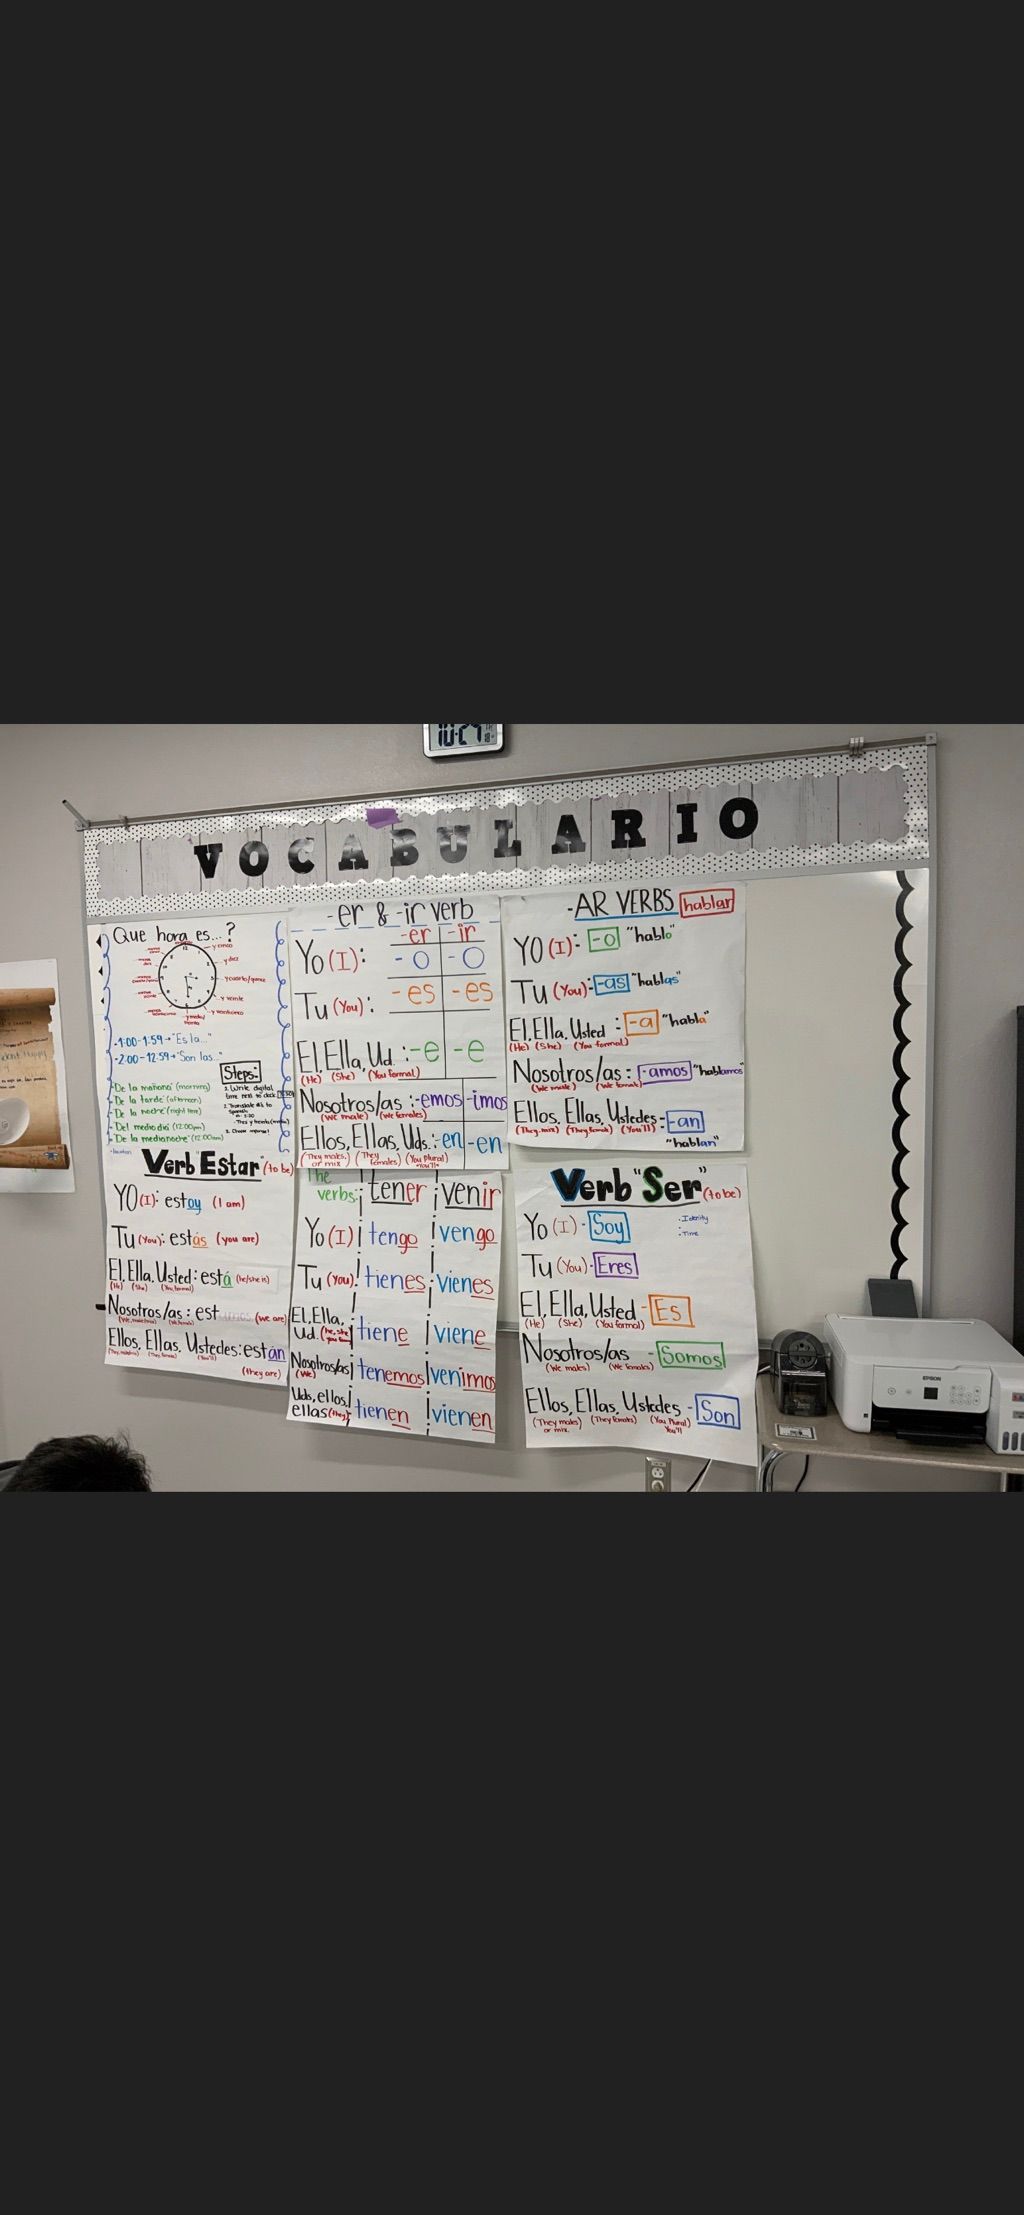 10:29
VOCABULARIO
Que hora es...?
12
y cinco
y diez
y cuarto/quince
y veinte
y veinticinco
y media/
-1:00-1:59→"Es la..."
-2:00-12:59→"Son las..."
Steps:
1. Write digital
time next to clock.
-De la mañana (morning)
-De la tarde (afternoon)
-De la noche (night time)
-Del medio dia (12:00pm)
-De la medianoche (12:00am)
Verb "Estar" (to be)
YO (I): estoy (I am)
Tu (You): estás (you are)
El, Ella, Usted: está (he/she is)
(He) (She) (You formal)
Nosotros/as: estamos (we are)
Ellos, Ellas, Ustedes: están
(they are)
-er & -ir verb
-er -ir
Yo (I): -o -o
Tu (You): -es -es
El, Ella, Ud.: -e -e
(He) (She) (You formal)
Nosotros/as: -emos -imos
(we male) (we females)
Ellos, Ellas, Uds.: -en -en
(They males, (They (You plural)
or mix) females) "You'll"
The
verbs: tener venir
Yo (I) tengo vengo
Tu (You): tienes vienes
El, Ella,
Ud. (he, she tiene viene
Nosotros/as tenemos venimos
(we)
Uds, ellos,
ellas (they) tienen vienen
-AR VERBS hablar
YO (I): -o "hablo"
Tu (You): -as "hablas"
El, Ella, Usted: -a "habla"
(He) (She) (You formal)
Nosotros/as: -amos "hablamos"
(We male) (We female)
Ellos, Ellas, Ustedes- -an
(They, mix) (They female) (You'll)
"hablan"
Verb "Ser" (to be)
Yo (I) - Soy
· Identity
· Time
Tu (You)- Eres
El, Ella, Usted - Es
(He) (She) (You formal)
Nosotros/as - Somos
(We males) (We females)
Ellos, Ellas, Ustedes - Son
(They males (They females) (You Plural)
or mix. You'll
EPSON